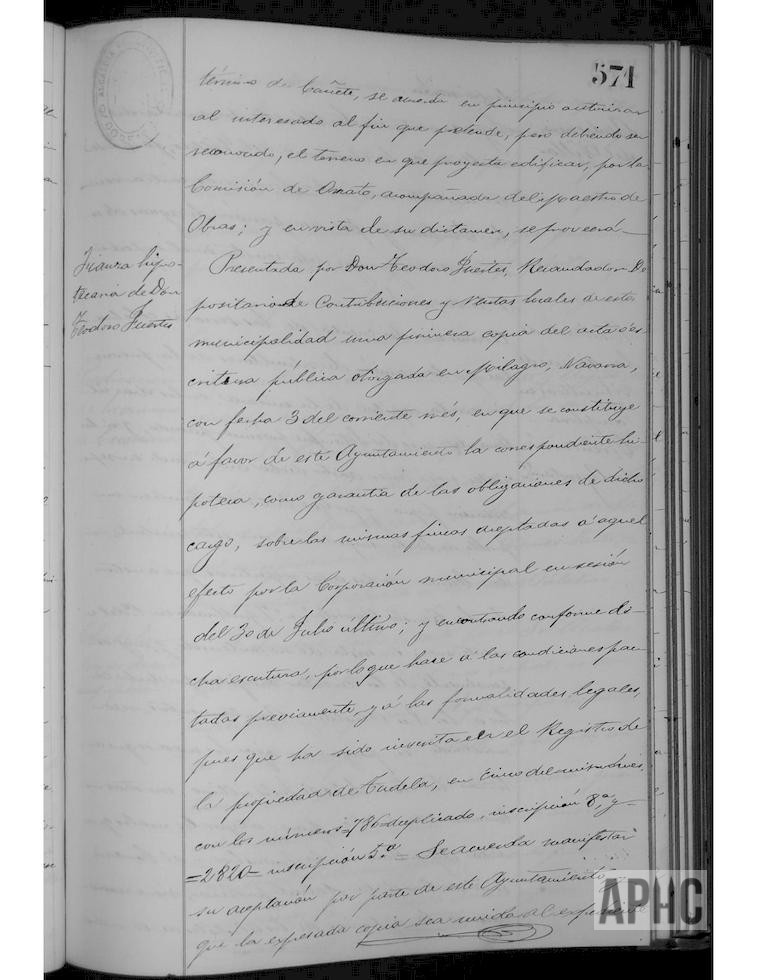 571
término de Cañete, se acuerda en principio autorizar
al interesado al fin que pretende, pero debiendo ser
reconocido, el terreno en que proyecta edificar, por la
Comisión de Ornato, acompañada del Maestro de
Obras; y en vista de su dictamen, se proveerá
Fianza hipo-
tecaria de Don
Teodoro Fuertes
Presentada por Don Teodoro Fuertes, Recaudador De
positario de Contribuciones y Rentas locales de esta
municipalidad una primera copia del acta ó es
critura pública otorgada en Milagro, Navarra,
con fecha 3 del corriente més, en que se constituye
á favor de este Ayuntamiento la correspondiente hi-
poteca, como garantia de las obligaciones de dicho
cargo, sobre las mismas fincas aceptadas á aquel
efecto por la Corporación municipal en sesión
del 30 de Julio último; y encontrando conforme di-
cha escritura, por lo que hace á las condiciones pac
tadas previamente, y á las formalidades legales,
pues que ha sido inscrita en el Registro de
la propiedad de Tudela, en cinco del mismo més,
con los números =786= duplicado, inscripción 8.ª y
=2820= inscripción 5.ª = Se acuerda manifestar
su aceptación por parte de este Ayuntamiento
que la expresada copia sea unida al expediente
APHC